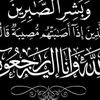 وَبَشِّرِ الصَّابِرِينَ
الَّذِينَ إِذَا أَصَابَتْهُم مُّصِيبَةٌ قَالُوا
لِلَّهِ وَإِنَّا إِلَيْهِ رَاجِعُونَ